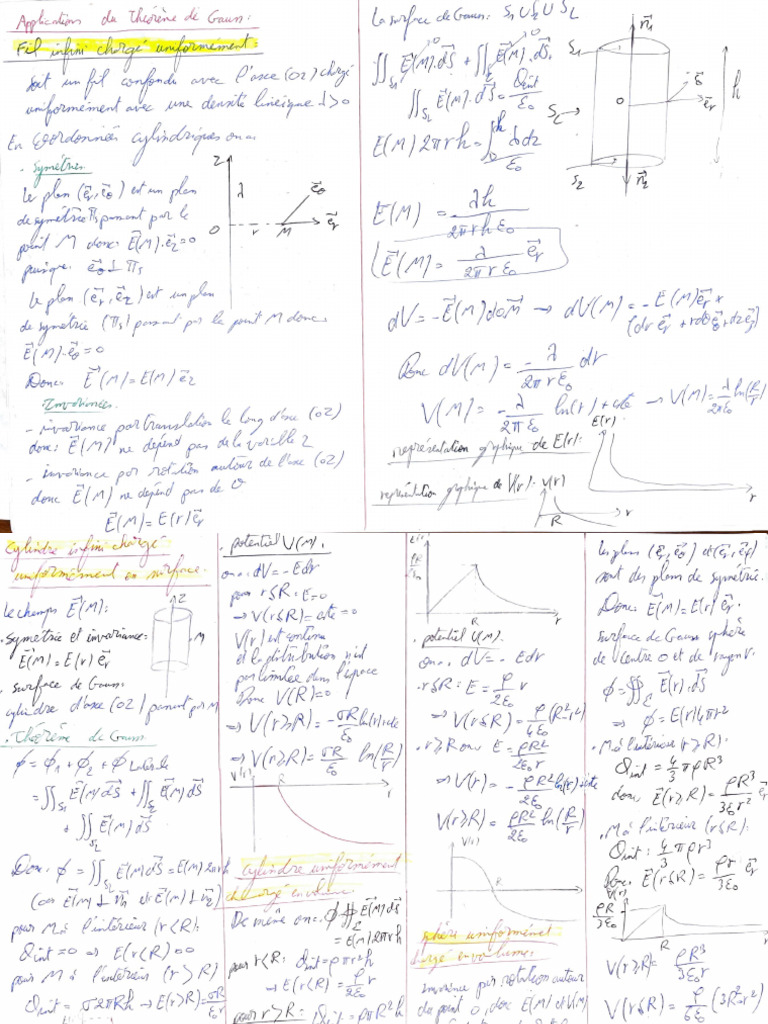 Applications du Théorème de Gauss:
Fil infini chargé uniformément:
Soit un fil confondu avec l'axe (OZ) chargé
uniformément avec une densité linéique λ>0
En coordonnées cylindriques on a:
. Symétries
Le plan (e⃗r, e⃗θ) est un plan
de symétrie Πs passant par le
point M donc E⃗(M).e⃗z=0
puisque e⃗z ⊥ Πs
Le plan (e⃗r, e⃗z) est un plan
de symétrie (Πs) passant par le point M donc
E⃗(M).e⃗θ=0
Donc E⃗(M)=E(M)e⃗z
Invariances
- invariance par translation le long d'axe (OZ)
donc E⃗(M) ne dépend pas de la variable z
- invariance par rotation autour de l'axe (OZ)
donc E⃗(M) ne dépend pas de θ
E⃗(M)=E(r)e⃗r
Z
λ
O
r
M
e⃗θ
e⃗r
La surface de Gauss: S1 U S2 U SL
∬S1 E⃗(M).dS⃗ + ∬S2 E⃗(M).dS⃗
∬SL E⃗(M).dS⃗ = Qint/ε0
E(M)2πrh = ∫0h λdz/ε0
E(M) = λh/2πrhε0
E⃗(M) = λ/2πrε0 e⃗r
n⃗1
S1
O
SL
e⃗r
h
S2
n⃗2
dV=-E⃗(M)dOM⃗ → dV(M)=-E(M)e⃗r×
(dr e⃗r + rdθe⃗θ + dze⃗z)
Donc dV(M) = -λ/2πrε0 dr
V(M) = -λ/2πε0 ln(r) + cste → V(M)=λ/2πε0 ln(R/r)
représentation graphique de E(r):
E(r)
r
représentation graphique de V(r):
V(r)
R
r
Cylindre infini chargé
uniformément en surface.
Le champs E⃗(M):
. symétrie et invariance:
E⃗(M)=E(r)e⃗r
Z
M
. surface de Gauss
cylindre d'axe (OZ) passant par M
. Théorème de Gauss
ϕ=ϕ1+ϕ2+ϕLatérale
=∬S1 E⃗(M)dS⃗ + ∬S2 E⃗(M)dS⃗
+ ∬SL E⃗(M)dS⃗
Donc ϕ=∬SL E⃗(M)dS⃗=E(M)2πrh
(car E⃗(M)⊥n⃗1 et E⃗(M)⊥n⃗2)
pour M à l'intérieur (r<R):
Qint=0 ⇒ E(r<R)=0
pour M à l'intérieur (r>R)
Qint = σ2πRh → E(r>R)=σR/
. potentiel V(M).
on a dV=-Edr
pour r≤R: E=0
→ V(r≤R)=cste=0
V(r) est continu
et la distribution n'est
pas limitée dans l'espace
Donc V(R)=0
→ V(r≥R)=-σR/ε0 ln(r)+cste
→ V(r≥R)=σR/ε0 ln(R/r)
V(r)
R
r
Cylindre uniformément
chargé en volume
De même on a ϕ=∯E⃗(M)dS⃗
=E(M)2πrh
pour r<R: Qint=ρπr²h
→ E(r<R)=ρ/2ε0 r
pour r>R: Qint=ρπR²h
E(r)
R
r
. potentiel V(M).
on a dV=-Edr
. r≤R: E=ρ/2ε0 r
→ V(r≤R)=ρ/4ε0 (R²-r²)
. r≥R on a E=ρR²/2ε0r
→ V(r)=-ρR²/2ε0 ln(r)+cste
V(r≥R)=ρR²/2ε0 ln(R/r)
V(r)
R
r
sphère uniformément
chargé en volume:
invariance par rotation autour
du point O, donc E(M) et V(M)
Les plans (e⃗r, e⃗θ) et (e⃗r, e⃗φ)
sont des plans de symétrie.
Donc E⃗(M)=E(r)e⃗r.
surface de Gauss sphère
de centre O et de rayon r.
ϕ=∯Σ E⃗(r).dS⃗
⇒ ϕ=E(r)4πr²
. M à l'intérieur (r≥R):
Qint=4/3 πρR³
donc E⃗(r≥R)=ρR³/3ε0r² e⃗r
. M à l'intérieur (r≤R):
Qint: 4/3 πρr³
Donc E⃗(r≤R)=ρr/3ε0 e⃗r
E(r)
ρR/3ε0
R
r
V(r≥R)=ρR³/3ε0r
V(r≤R)=ρ/6ε0 (3R²-r²)